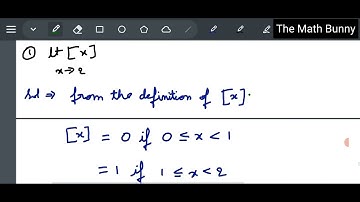 The Math Bunny
① lt [x]
x→2
Sol ⇒ from the definition of [x].
[x] = 0 if 0 ≤ x < 1
= 1 if 1 ≤ x < 2